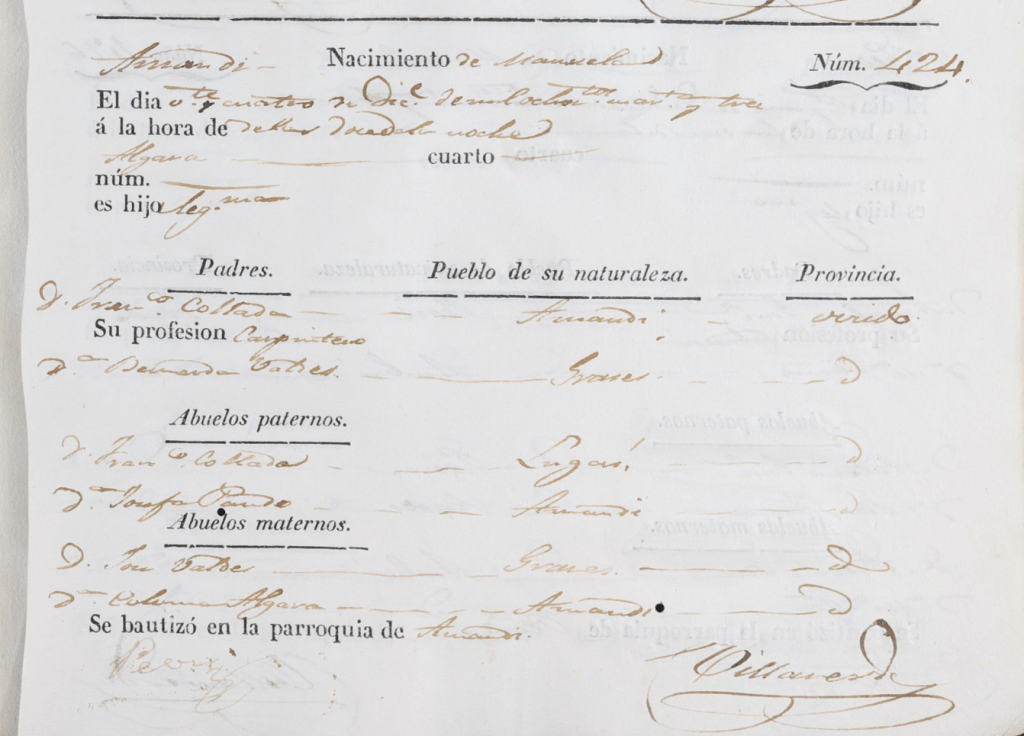 Amandi - Nacimiento de Manuela Núm. 424.
El dia vte y cuatro de Dice. de mil ochotos. cuart. y tres
á la hora de de las doce de la noche
Algara cuarto
núm.
es hijo leg.ma
Padres. Pueblo de su naturaleza. Provincia.
D. Franco. Collada - - - Amandi - oviedo
Su profesion Carpintero
Da. Bernarda Valdes. - - Grases. - - - d
Abuelos paternos.
D. Franco. Collada - - - Lugas. - - - d
Da. Josefa Pando Amandi - - - d
Abuelos maternos.
D. Jose Valdes Grases. - - d
Da. Coloma Algara - - - Amandi - - d
Se bautizó en la parroquia de Amandi.
Villaverde